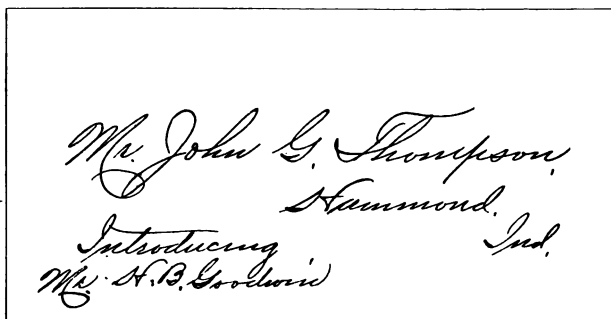 Mr. John G. Thompson,
Hammond,
Ind.
Introducing
Mr. H. B. Goodwin